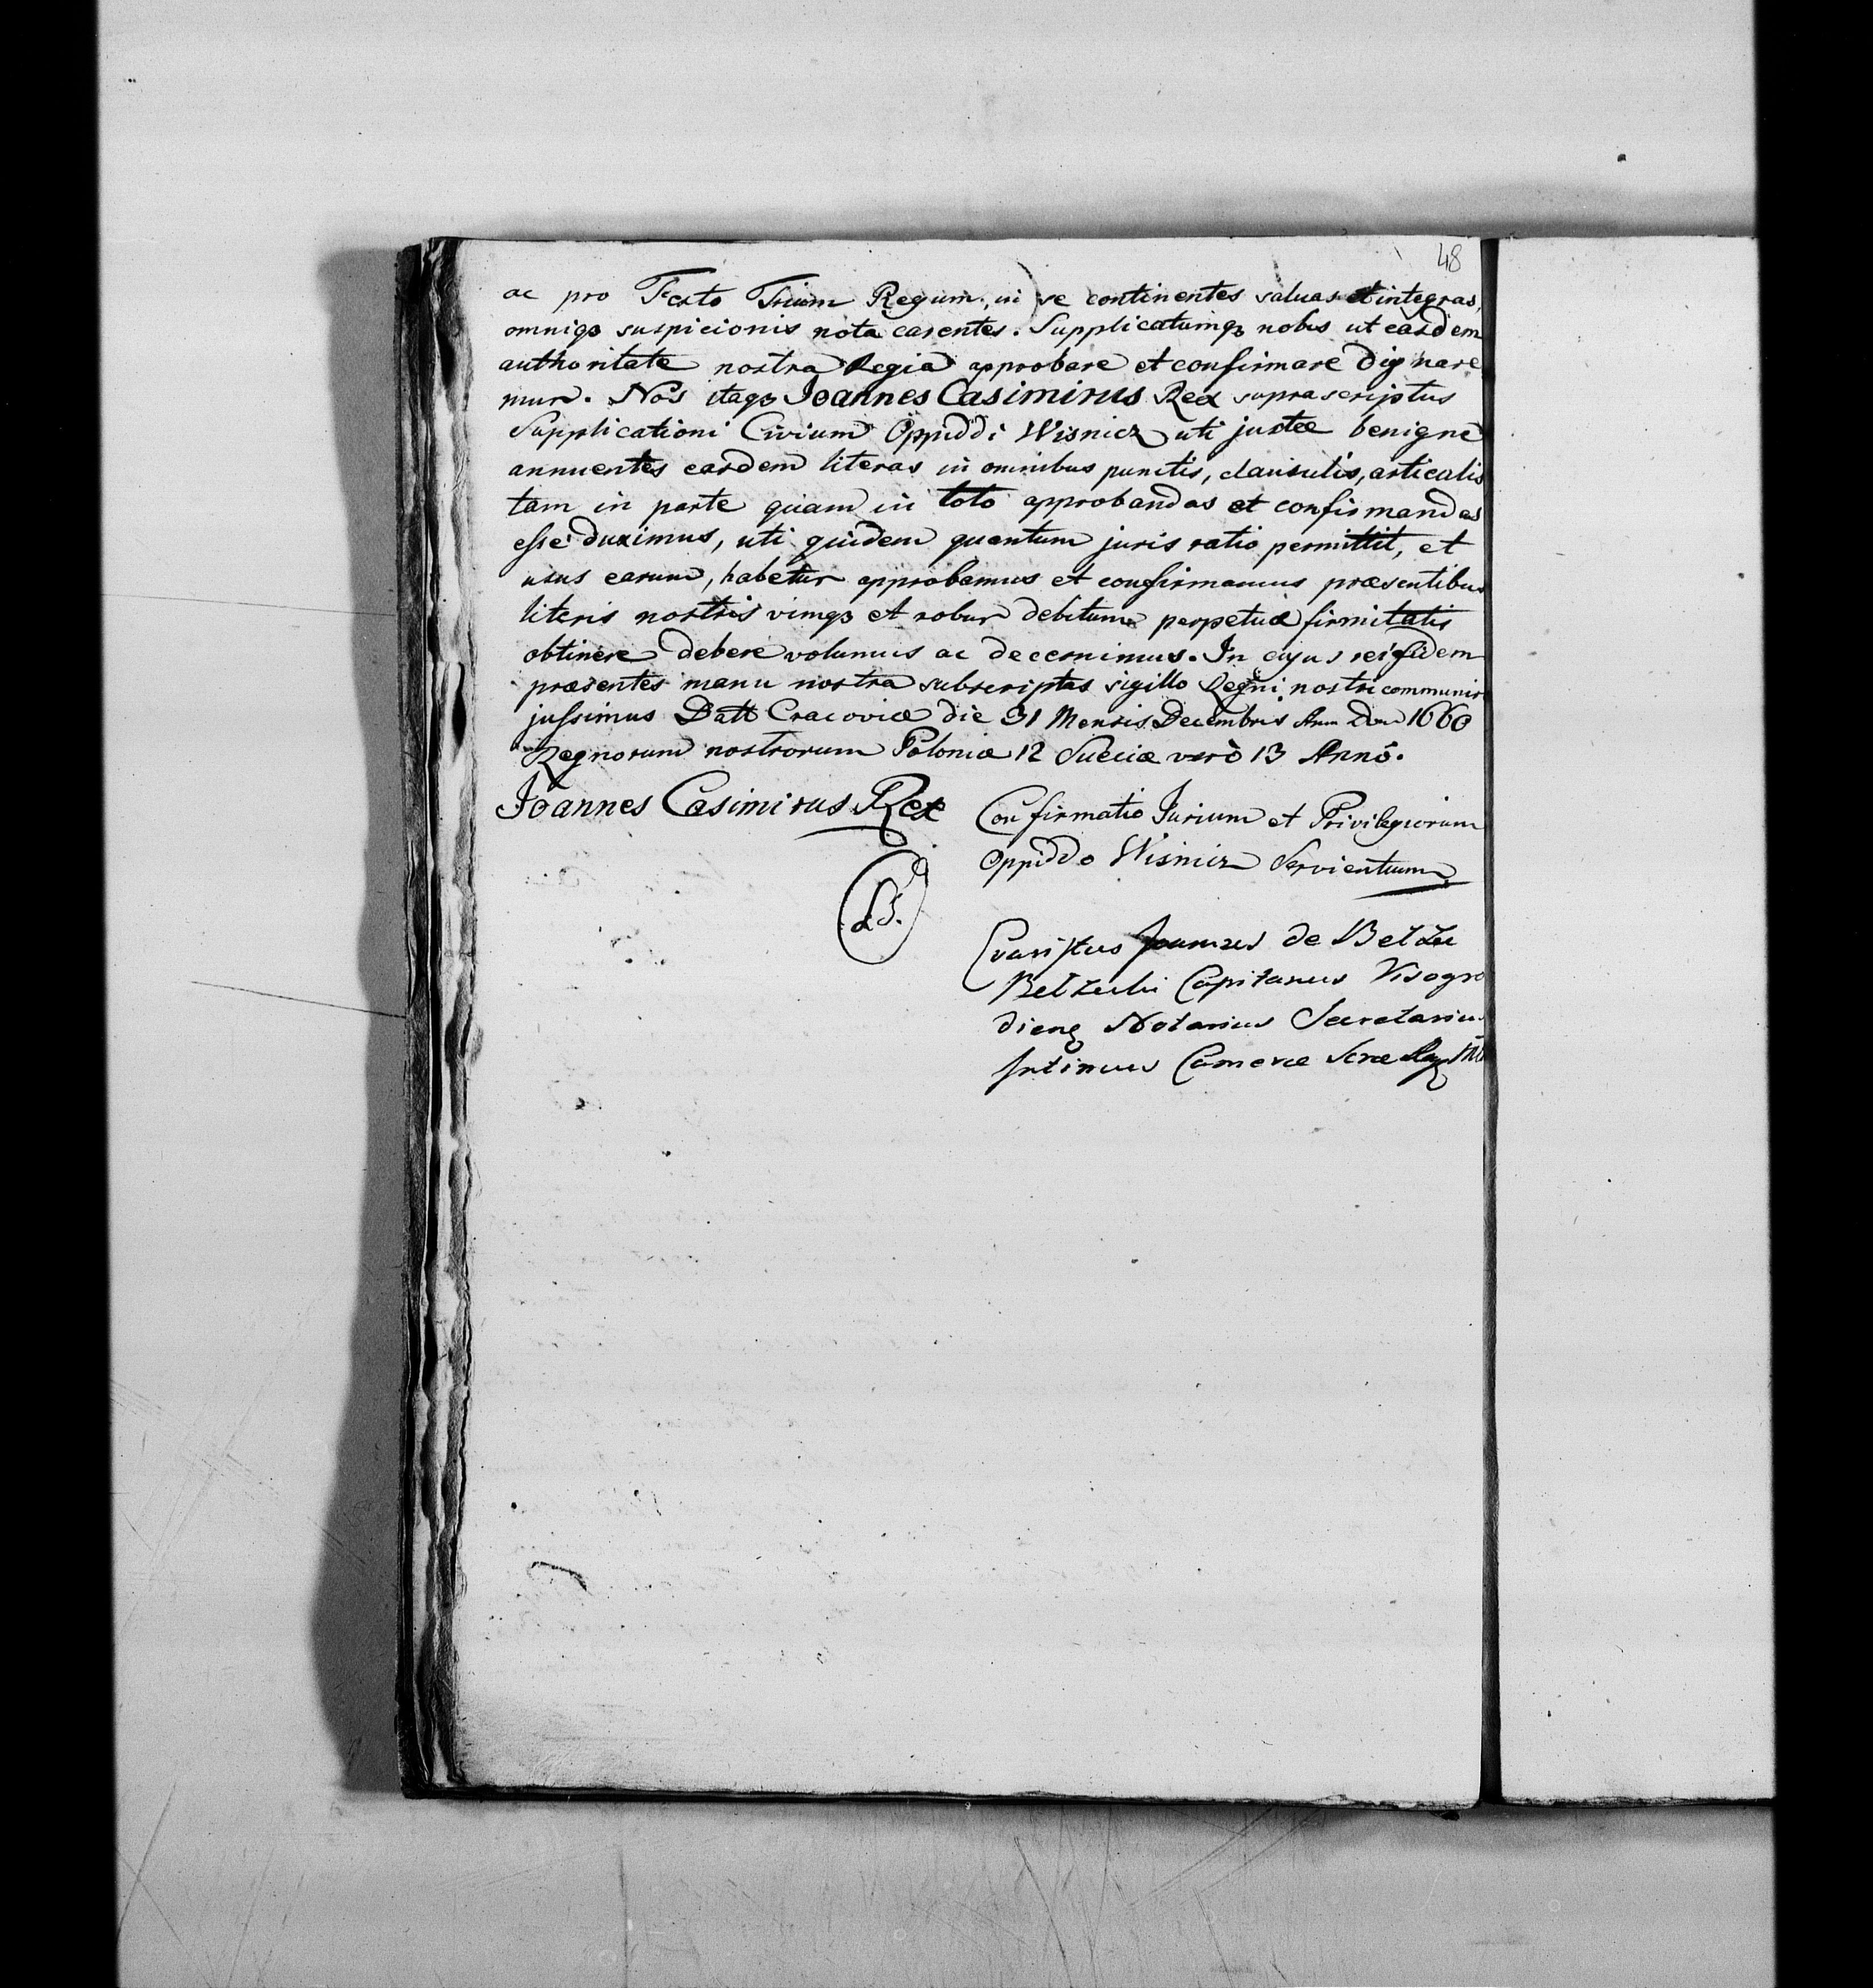 48
ac pro Festo Trium Regum, in se continentes saluas et integras,
omniq3 suspicionis nota carentes. Supplicatumq3 nobis ut easdem
authoritate nostra Regia approbare et confirmare dignare
mur. Nos itaq3 Joannes Casimirus Rex suprascriptus
Supplicationi Civium Oppiddi Wisnicz uti justæ benignè
annuentes easdem literas in omnibus punctis, clausulis, articulis
tam in parte quam in toto approbandas et confirmandas
esse duximus, uti quidem quantum juris ratio permittit, et
usus earum, habetur approbamus et confirmamus præsentibus
literis nostris vimq3 et robur debitum perpetuæ firmitatis
obtinere debere volumus ac decernimus. In cujus rei fidem
præsentes manu nostra subscriptas sigillo Regni nostri communir
jussimus Datt Cracoviæ die 31 Mensis Decembris Ann Dom 1660
Regnorum nostrorum Poloniæ 12 Sueciæ verò 13 Annô.
Joannes Casimirus Rex
Confirmatio Jurium et Privilegiorum
Oppiddo Wisnicz Servientium
LS.
Evaristus Joannes de Belzec
Belzecki Capitaneus Visogro
dieng Notarius Secretarius
Intimus Cameræ Scræ Reg Mtt